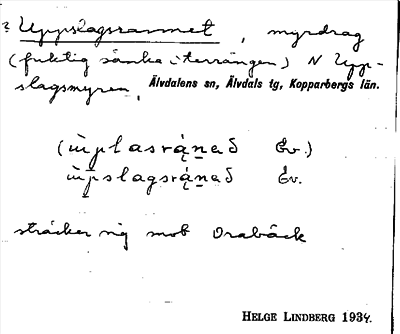 ? Uppslagsrannet, myrdrag
(fuktig sänka i terrängen) N Upp-
slagsmyren, Älvdalens sn, Älvdals tg, Kopparbergs län.
Ev.)
Ev.
sträcker sig mot Orabäck
HELGE LINDBERG 1934.